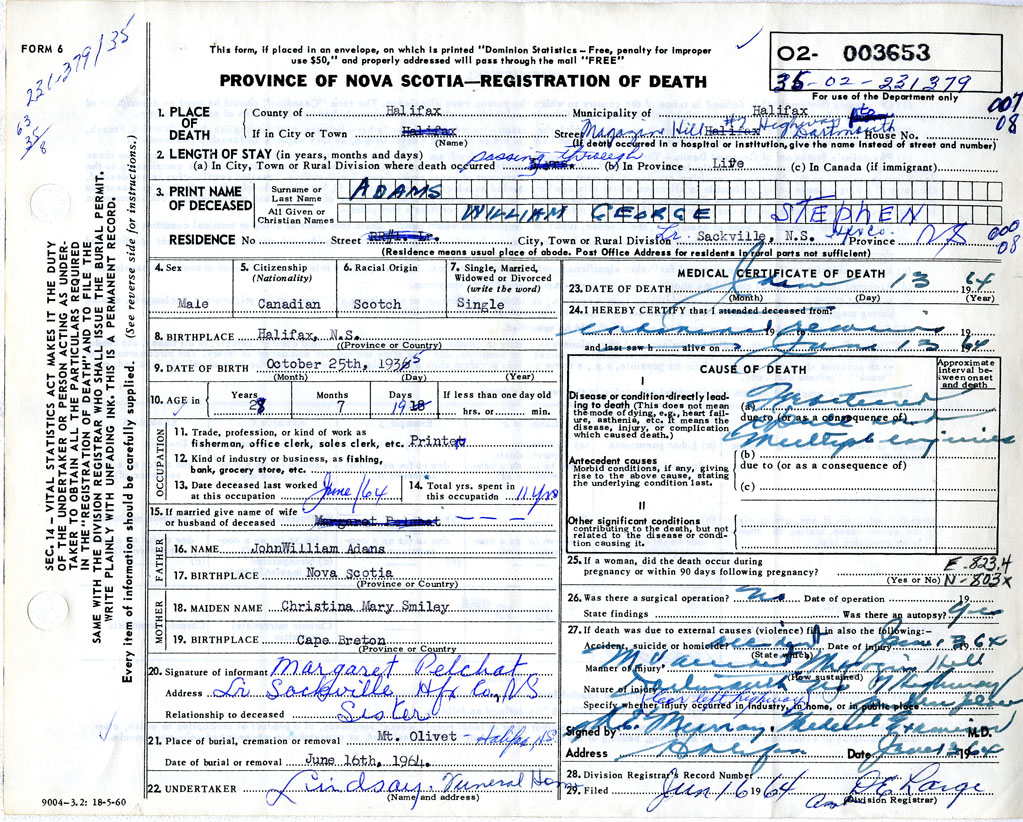 FORM 6
231,379/35
63
35/8
This form, if placed in an envelope, on which is printed "Dominion Statistics—Free, penalty for improper
use $50," and properly addressed will pass through the mail "FREE"
PROVINCE OF NOVA SCOTIA—REGISTRATION OF DEATH
02- 003653
35-02-231379
For use of the Department only
007
08
1. PLACE OF DEATH
County of Halifax Municipality of Halifax
If in City or Town Halifax Street Magazine Hill Halifax #7 Highway Dartmouth House No.
(Name) (If death occurred in a hospital or institution, give the name instead of street and number)
2. LENGTH OF STAY (in years, months and days)
(a) In City, Town or Rural Division where death occurred passing through (b) In Province Life (c) In Canada (if immigrant)
3. PRINT NAME OF DECEASED
Surname or Last Name ADAMS
All Given or Christian Names WILLIAM GEORGE STEPHEN
RESIDENCE No Street RR#1, Lr. City, Town or Rural Division Lr. Sackville, N.S. Hfx Co. Province NS
000
08
(Residence means usual place of abode. Post Office Address for residents in rural parts not sufficient)
4. Sex Male
5. Citizenship (Nationality) Canadian
6. Racial Origin Scotch
7. Single, Married, Widowed or Divorced (write the word) Single
8. BIRTHPLACE Halifax, N.S.
(Province or Country)
9. DATE OF BIRTH October 25th, 1935
(Month) (Day) (Year)
10. AGE in Years 28 Months 7 Days 19 If less than one day old hrs. or min.
OCCUPATION
11. Trade, profession, or kind of work as
fisherman, office clerk, sales clerk, etc. Printer
12. Kind of industry or business, as fishing,
bank, grocery store, etc.
13. Date deceased last worked at this occupation June/64
14. Total yrs. spent in this occupation 11 yrs
15. If married give name of wife
or husband of deceased Margaret Pelchat
FATHER
16. NAME JohnWilliam Adans
17. BIRTHPLACE Nova Scotia
(Province or Country)
MOTHER
18. MAIDEN NAME Christina Mary Smiley
19. BIRTHPLACE Cape Breton
(Province or Country)
20. Signature of informant Margaret Pelchat
Address Lr Sackville Hfx Co, NS
Relationship to deceased Sister
21. Place of burial, cremation or removal Mt. Olivet - Halifax NS
Date of burial or removal June 16th, 1964.
22. UNDERTAKER Lindsay Funeral Home
(Name and address)
MEDICAL CERTIFICATE OF DEATH
23. DATE OF DEATH June 13 1964
(Month) (Day) (Year)
24. I HEREBY CERTIFY that I attended deceased from
19 19
and last saw h alive on June 13 1964
CAUSE OF DEATH
Approximate interval between onset and death
I
Disease or condition directly leading to death (This does not mean the mode of dying, e.g., heart failure, asthenia, etc. It means the disease, injury, or complication which caused death.)
(a) Fractured
due to (or as a consequence of)
Skull and
Multiple injuries
(b)
due to (or as a consequence of)
(c)
Antecedent causes
Morbid conditions, if any, giving rise to the above cause, stating the underlying condition last.
II
Other significant conditions
contributing to the death, but not related to the disease or condition causing it.
25. If a woman, did the death occur during
pregnancy or within 90 days following pregnancy?
(Yes or No)
E-823.4
N-803x
26. Was there a surgical operation? No Date of operation 19
State findings Was there an autopsy? Yes
27. If death was due to external causes (violence) fill in also the following:—
Accident, suicide or homicide? accident Date of injury June 13 64
(State which)
Manner of injury
(How sustained)
Nature of injury
Car left highway
Specify whether injury occurred in industry, in home, or in public place
Signed by Murray Medical Examiner M.D.
Address Halifax Date June 13 1964
28. Division Registrar's Record Number
29. Filed Jun 16 1964 Large
(Division Registrar)
SEC. 14—VITAL STATISTICS ACT MAKES IT THE DUTY
OF THE UNDERTAKER OR PERSON ACTING AS UNDER-
TAKER TO OBTAIN ALL THE PARTICULARS REQUIRED
IN THE "REGISTRATION OF DEATH" AND TO FILE THE
SAME WITH THE DIVISION REGISTRAR WHO SHALL ISSUE THE BURIAL PERMIT.
WRITE PLAINLY WITH UNFADING INK. THIS IS A PERMANENT RECORD.
Every item of information should be carefully supplied. (See reverse side for instructions.)
9004—3.2: 18-5-60